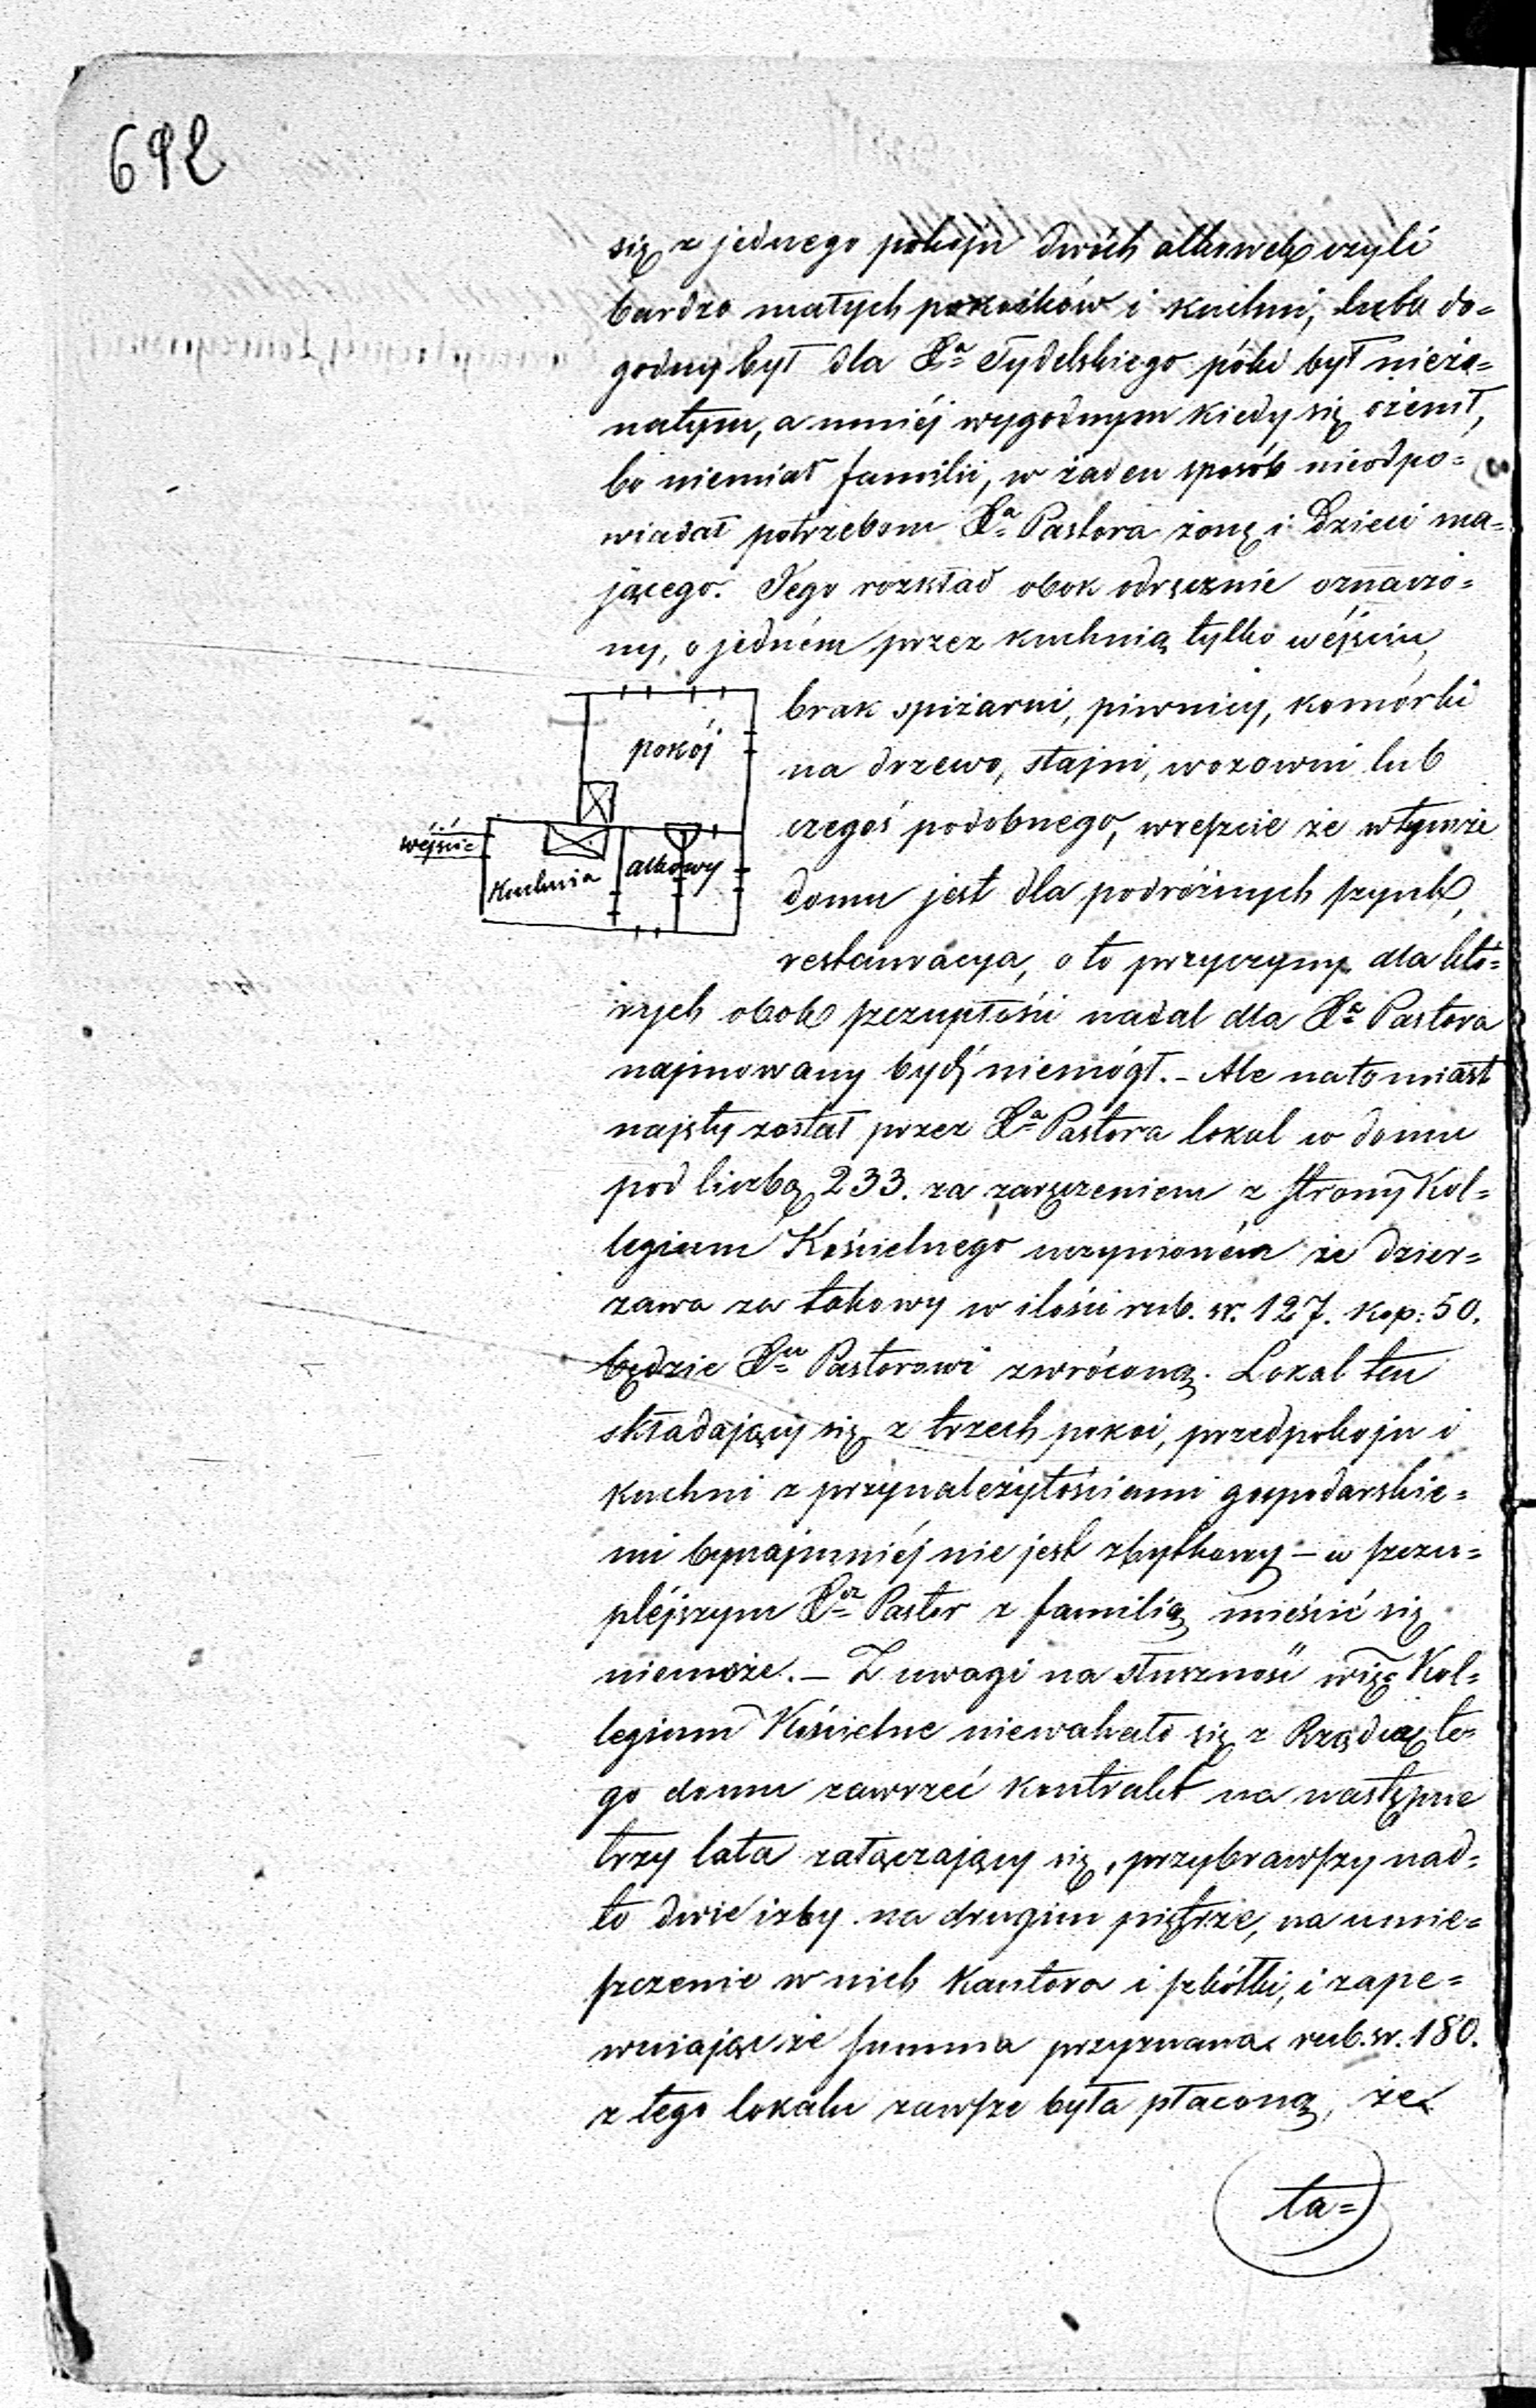 692
się z jednego pokoju dwóch alkowek czyli
bardzo małych pokoików i kuchni, lubo do=
godny był dla Xa Tydelskiego póki był nieżo=
natym, a mniéj wygodnym kiedy się ożenił,
bo niemiał familii, w żaden sposób nieodpo=
wiadał potrzebom Xa Pastora żonę i Dzieci ma=
jącego. Tego rozkład obok odręcznie oznaczo=
ny, o jedném przez kuchnią tylko wéjściu,
brak spiżarni, piwnicy, komórki
na drzewo, stajni, wozowni lub
czegoś podobnego, wreszcie że w tymże
domu jest dla podróżnych szynk,
restauracya, o to przyczyny dla któ=
rych obok szczupłości nadal dla Xa Pastora
najmowany bydź niemógł. – Ale natomiast
najęty został przez Xa Pastora lokal w domu
pod liczbą 233. za zaręczeniem z strony Kol=
legium Kościelnego uczynioném że dzier=
zawa za takowy w ilości rub. sr. 127. kop: 50.
będzie Xu Pastorowi zwróconą. Lokal ten
składający się z trzech pokoi, przedpokoju i
kuchni z przynależytościami gospodarskie=
mi bynajmniéj nie jest zbytkowy – w szczu=
pléjszym Xdz Pastor z familią mieścić się
niemoże. – Z uwagi na słuszność więc Kol=
legium Kościelne niewahało się z Rządcą te=
go domu zawrzeć kontrakt na następne
trzy lata załączający się, przybrawszy nad=
to dwie izby na drugim piętrze, na umie=
szczenie w nich Kantora i szkółki, i zape=
wniając że summa przyznana rub. sr. 180.
z tego lokalu zawsze była płaconą, że
ta=
pokój
wéjście
Kuchnia
alkowy